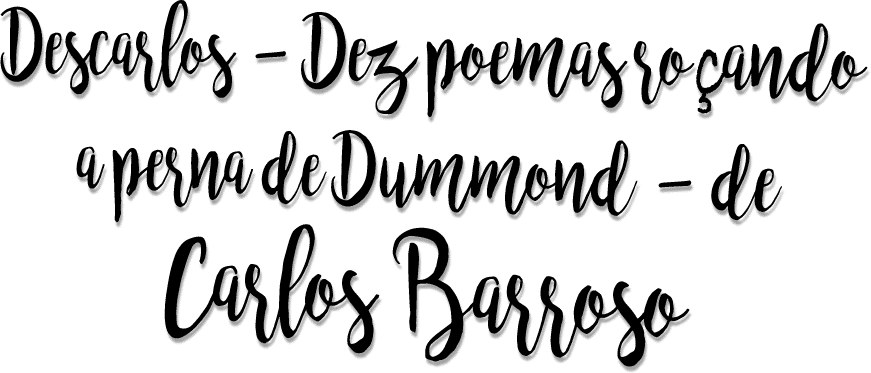 Descarlos - Dez poemas roçando
a perna de Dummond - de
Carlos Barroso